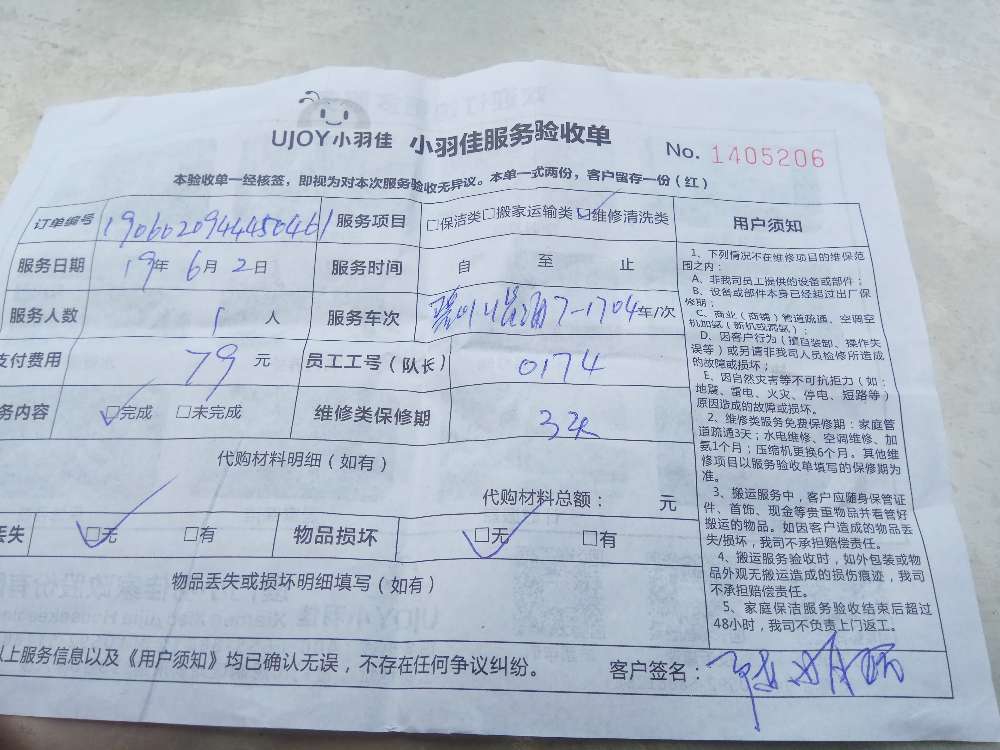 UJOY小羽佳 小羽佳服务验收单 No. 1405206
本验收单一经核签，即视为对本次服务验收无异议。本单一式两份，客户留存一份（红）
订单编号 1906020944450461 服务项目 □保洁类□搬家运输类☑维修清洗类
服务日期 19年6月2日 服务时间 自 至 止
服务人数 1 人 服务车次 7-1704 年/次
支付费用 79 元 员工工号（队长） 0174
务内容 ☑完成 □未完成 维修类保修期 3天
代购材料明细（如有）
代购材料总额： 元
丢失 ☑无 □有 物品损坏 ☑无 □有
物品丢失或损坏明细填写（如有）
以上服务信息以及《用户须知》均已确认无误，不存在任何争议纠纷。 客户签名：
用户须知
1、下列情况不在维修项目的维保范
围之内：
A、非我司员工提供的设备或部件；
B、设备或部件本身已经超过出厂保
修期；
C、商业（商铺）管道疏通、空调空
机加氨（新机或高氨）；
D、因客户行为（擅自装卸、操作失
误等）或另请非我司人员检修所造成
的故障或损坏；
E、因自然灾害等不可抗拒力（如：
地震、雷电、火灾、停电、短路等）
原因造成的故障或损坏。
2、维修类服务免费保修期：家庭管
道疏通3天；水电维修、空调维修、加
氨1个月；压缩机更换6个月。其他维
修项目以服务验收单填写的保修期为
准。
3、搬运服务中，客户应随身保管证
件、首饰、现金等贵重物品并看管好
搬运的物品。如因客户造成的物品丢
失/损坏，我司不承担赔偿责任。
4、搬运服务验收时，如外包装或物
品外观无搬运造成的损伤痕迹，我司
不承担赔偿责任。
5、家庭保洁服务验收结束后超过
48小时，我司不负责上门返工。